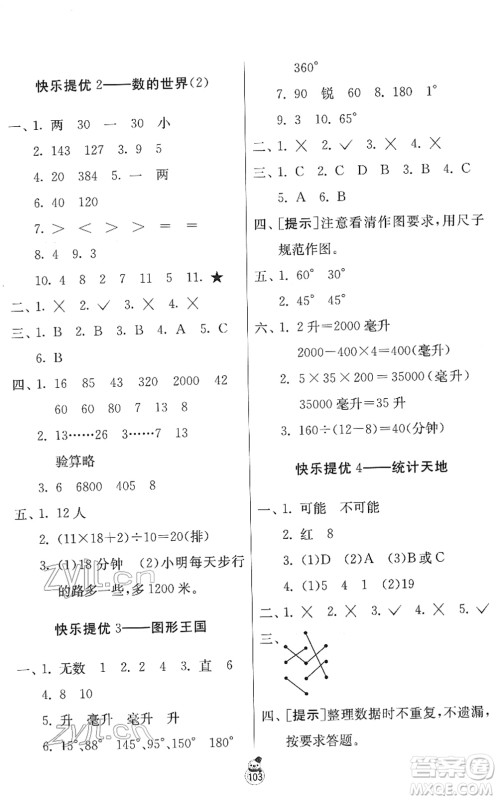 快乐提优 2——数的世界(2)
一、1. 两 30 一 30 小
2. 143 127 3. 9 5
4. 20 384 5. 一 两
6. 40 120
7. ＞ ＜ ＞ ＞ ＝ ＝
8. 4 9. 3
10. 4 8 2 7 11 5 11. ★
二、1. ✕ 2. ✓ 3. ✕ 4. ✕
三、1. B 2. B 3. D 4. A 5. C
6. B
四、1. 16 85 43 320 2000 42
60 60 80 7 8 9
2. 13……13 3……7 13 13
验算略
3. 6 6800 405 8
五、1. 12 人
2. (11×18+2)÷10=20(排)
3. (1)18 分钟 (2)小明每天步行
的路多一些,多 1200 米。
快乐提优 3——图形王国
一、1. 无数 1 2. 2 4 3. 直 6
4. 8 10
5. 升 毫升 毫升 升 升
6. 15°,88° 145°、95° 180° 90°
360°
7. 90 锐 60 8. 180 1?
9. 3 10. 65°
二、1. ✕ 2. ✕ 3. ✓ 4. ✕ 5. ✕
三、1. C 2. C 3. D 4. B
5. A 6. B
四、[提示]注意看清作图要求,用尺子
规范作图。
五、1. 60° 30°
2. 45° 45°
六、1. 2 升=2000 毫升
2000-400×4=400(毫升)
2. 5×35×200=35000(毫升)
35000 毫升=35 升
3. 160÷(12-8)=40(分钟)
快乐提优 4——统计天地
一、1. 可能 不可能
2. 红 8
3. (1)D (2)A (3)B或C
4. (1)5 4 1 (2)19
二、1. ✕ 2. ✓ 3. ✕ 4. ✓ 5. ✓
三、
四、[提示]整理数据时不重复,不遗漏,
按要求答题。
103
zyjl.cn
答案圈
MXQE.COM